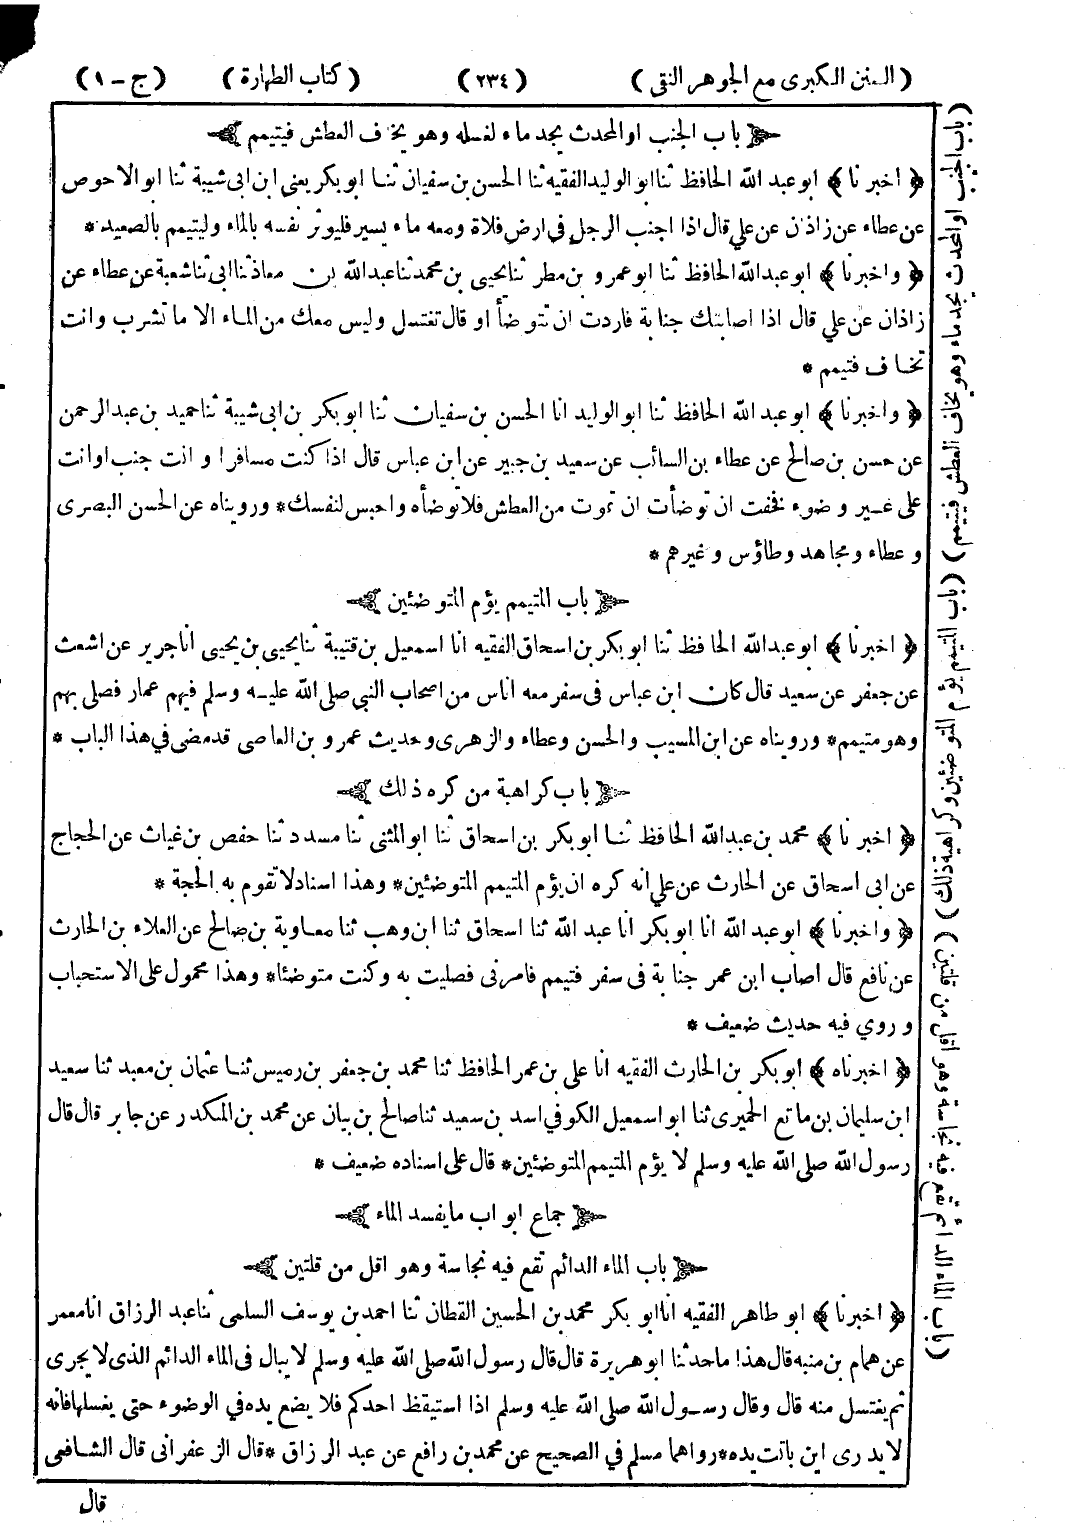 ( السنن الكبرى مع الجوهر النقى ) ( ٢٣٤ ) ( كتاب الطهارة ) ( ج - ١ )
باب الجنب او المحدث يجد ماء لغسله وهو يخاف العطش فيتيمم
﴿ اخبرنا ﴾ ابو عبد الله الحافظ ثنا ابو الوليد الفقيه ثنا الحسن بن سفيان ثنا ابو بكر يعنى ابن ابى شيبة ثنا ابو الاحوص
عن عطاء عن زاذن عن علي قال اذا اجنب الرجل في ارض فلاة ومعه ماء يسير فليوثر نفسه بالماء وليتيمم بالصعيد *
﴿ واخبرنا ﴾ ابو عبد الله الحافظ ثنا ابو عمرو بن مطر ثنا يحيى بن محمد ثنا عبد الله بن معاذ ثنا ابى ثنا شعبة عن عطاء عن
زاذان عن علي قال اذا اصابتك جنابة فاردت ان تتوضأ او قال تغتسل وليس معك من الماء الا ما تشرب وانت
تخاف فتيمم *
﴿ واخبرنا ﴾ ابو عبد الله الحافظ ثنا ابو الوليد انا الحسن بن سفيان ثنا ابو بكر بن ابى شيبة ثنا حميد بن عبد الرحمن
عن حسن بن صالح عن عطاء بن السائب عن سعيد بن جبير عن ابن عباس قال اذا كنت مسافرا و انت جنب او انت
على غير وضوء فخفت ان توضأت ان تموت من العطش فلا توضأه واحبس لنفسك * وروينا ه عن الحسن البصرى
و عطاء ومجاهد وطاؤس وغيرهم *
باب المتيمم يؤم المتوضئين
﴿ اخبرنا ﴾ ابو عبد الله الحافظ ثنا ابو بكر بن اسحاق الفقيه انا اسمعيل بن قتيبة ثنا يحيى بن يحيى أنا جرير عن اشعث
عن جعفر عن سعيد قال كان ابن عباس فى سفر معه اناس من اصحاب النبي صلى الله عليه وسلم فيهم عمار فصلى بهم
وهو متيمم * ورويناه عن ابن المسيب والحسن وعطاء والزهرى وحديث عمرو بن العاصى قد مضى في هذا الباب *
باب كراهية من كره ذلك
﴿ اخبرنا ﴾ محمد بن عبد الله الحافظ ثنا ابو بكر بن اسحاق ثنا ابو المثنى ثنا مسدد ثنا حفص بن غياث عن الحجاج
عن ابى اسحاق عن الحارث عن علي انه كره ان يؤم المتيمم المتوضئين * وهذا اسناد لا تقوم به الحجة *
﴿ واخبرنا ﴾ ابو عبد الله انا ابو بكر أنا عبد الله ثنا اسحاق ثنا ابن وهب ثنا معاوية بن صالح عن العلاء بن الحارث
عن نافع قال اصاب ابن عمر جنابة في سفر فتيمم فامرنى فصليت به وكنت متوضئا * وهذا محمول على الاستحباب
و روي فيه حديث ضعيف *
﴿ اخبرناه ﴾ ابو بكر بن الحارث الفقيه انا على بن عمر الحافظ ثنا محمد بن جعفر بن رميس ثنا عثمان بن معبد ثنا سعيد
ابن سليمان بن ماتع الحميرى ثنا ابو اسمعيل الكوفي اسد بن سعيد ثنا صالح بن بيان عن محمد بن المنكدر عن جابر قال قال
رسول الله صلى الله عليه وسلم لا يؤم المتيمم المتوضئين * قال على اسناده ضعيف *
جماع ابواب ما يفسد الماء
باب الماء الدائم تقع فيه نجاسة وهو اقل من قلتين
﴿ اخبرنا ﴾ ابو طاهر الفقيه انا ابو بكر محمد بن الحسين القطان ثنا احمد بن يوسف السلمى ثنا عبد الرزاق انا معمر
عن همام بن منبه قال هذا ما حدثنا ابو هريرة قال قال رسول الله صلى الله عليه وسلم لا يبال فى الماء الدائم الذى لا يجرى
ثم يغتسل منه قال وقال رسول الله صلى الله عليه وسلم اذا استيقظ احدكم فلا يضع يده في الوضوء حتى يغسلها فانه
لا يدرى اين باتت يده * رواهما مسلم في الصحيح عن محمد بن رافع عن عبد الرزاق * قال الزعفرانى قال الشافعى
قال
( باب الجنب او المحدث يجد ماء وهو يخاف العطش فيتيمم ) ( باب المتيمم يؤم المتوضئين وكراهية ذلك ) ( باب الماء الدائم تقع فيه نجاسة وهو اقل من قلتين )